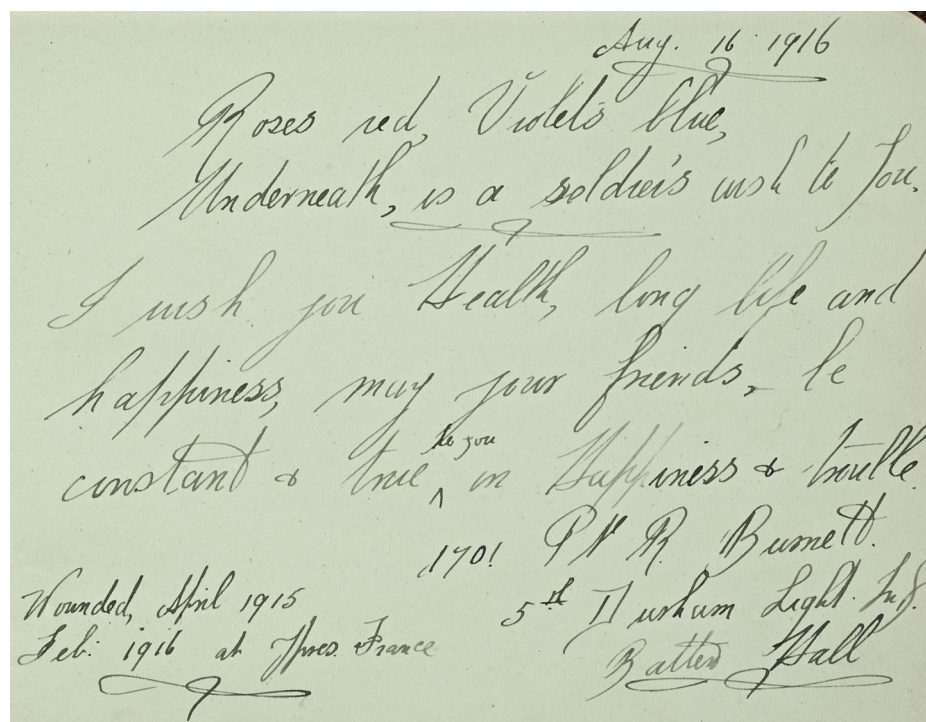 Aug. 16 1916
Roses red, Violets blue,
Underneath, is a soldier's wish to You.
I wish you Health, long life and
happiness, may your friends, be
constant & true to you in Happiness & trouble.
1701 Pte R. Burnett.
Wounded, April 1915 5th Durham Light. Inf.
Feb. 1916 at Ypres. France Hall